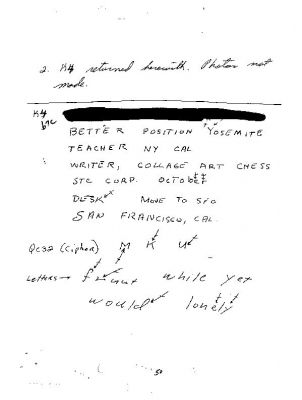 2. K4 returned herewith. Photos not
made.
K4
BETTER POSITION YOSEMITE
TEACHER NY CAL
WRITER, COLLAGE ART CHESS
STC CORP. OCTOBER
DESK MOVE TO SFO
SAN FRANCISCO, CAL.
Qc32 (Cipher) M K U
Letters → while yet
would lonely